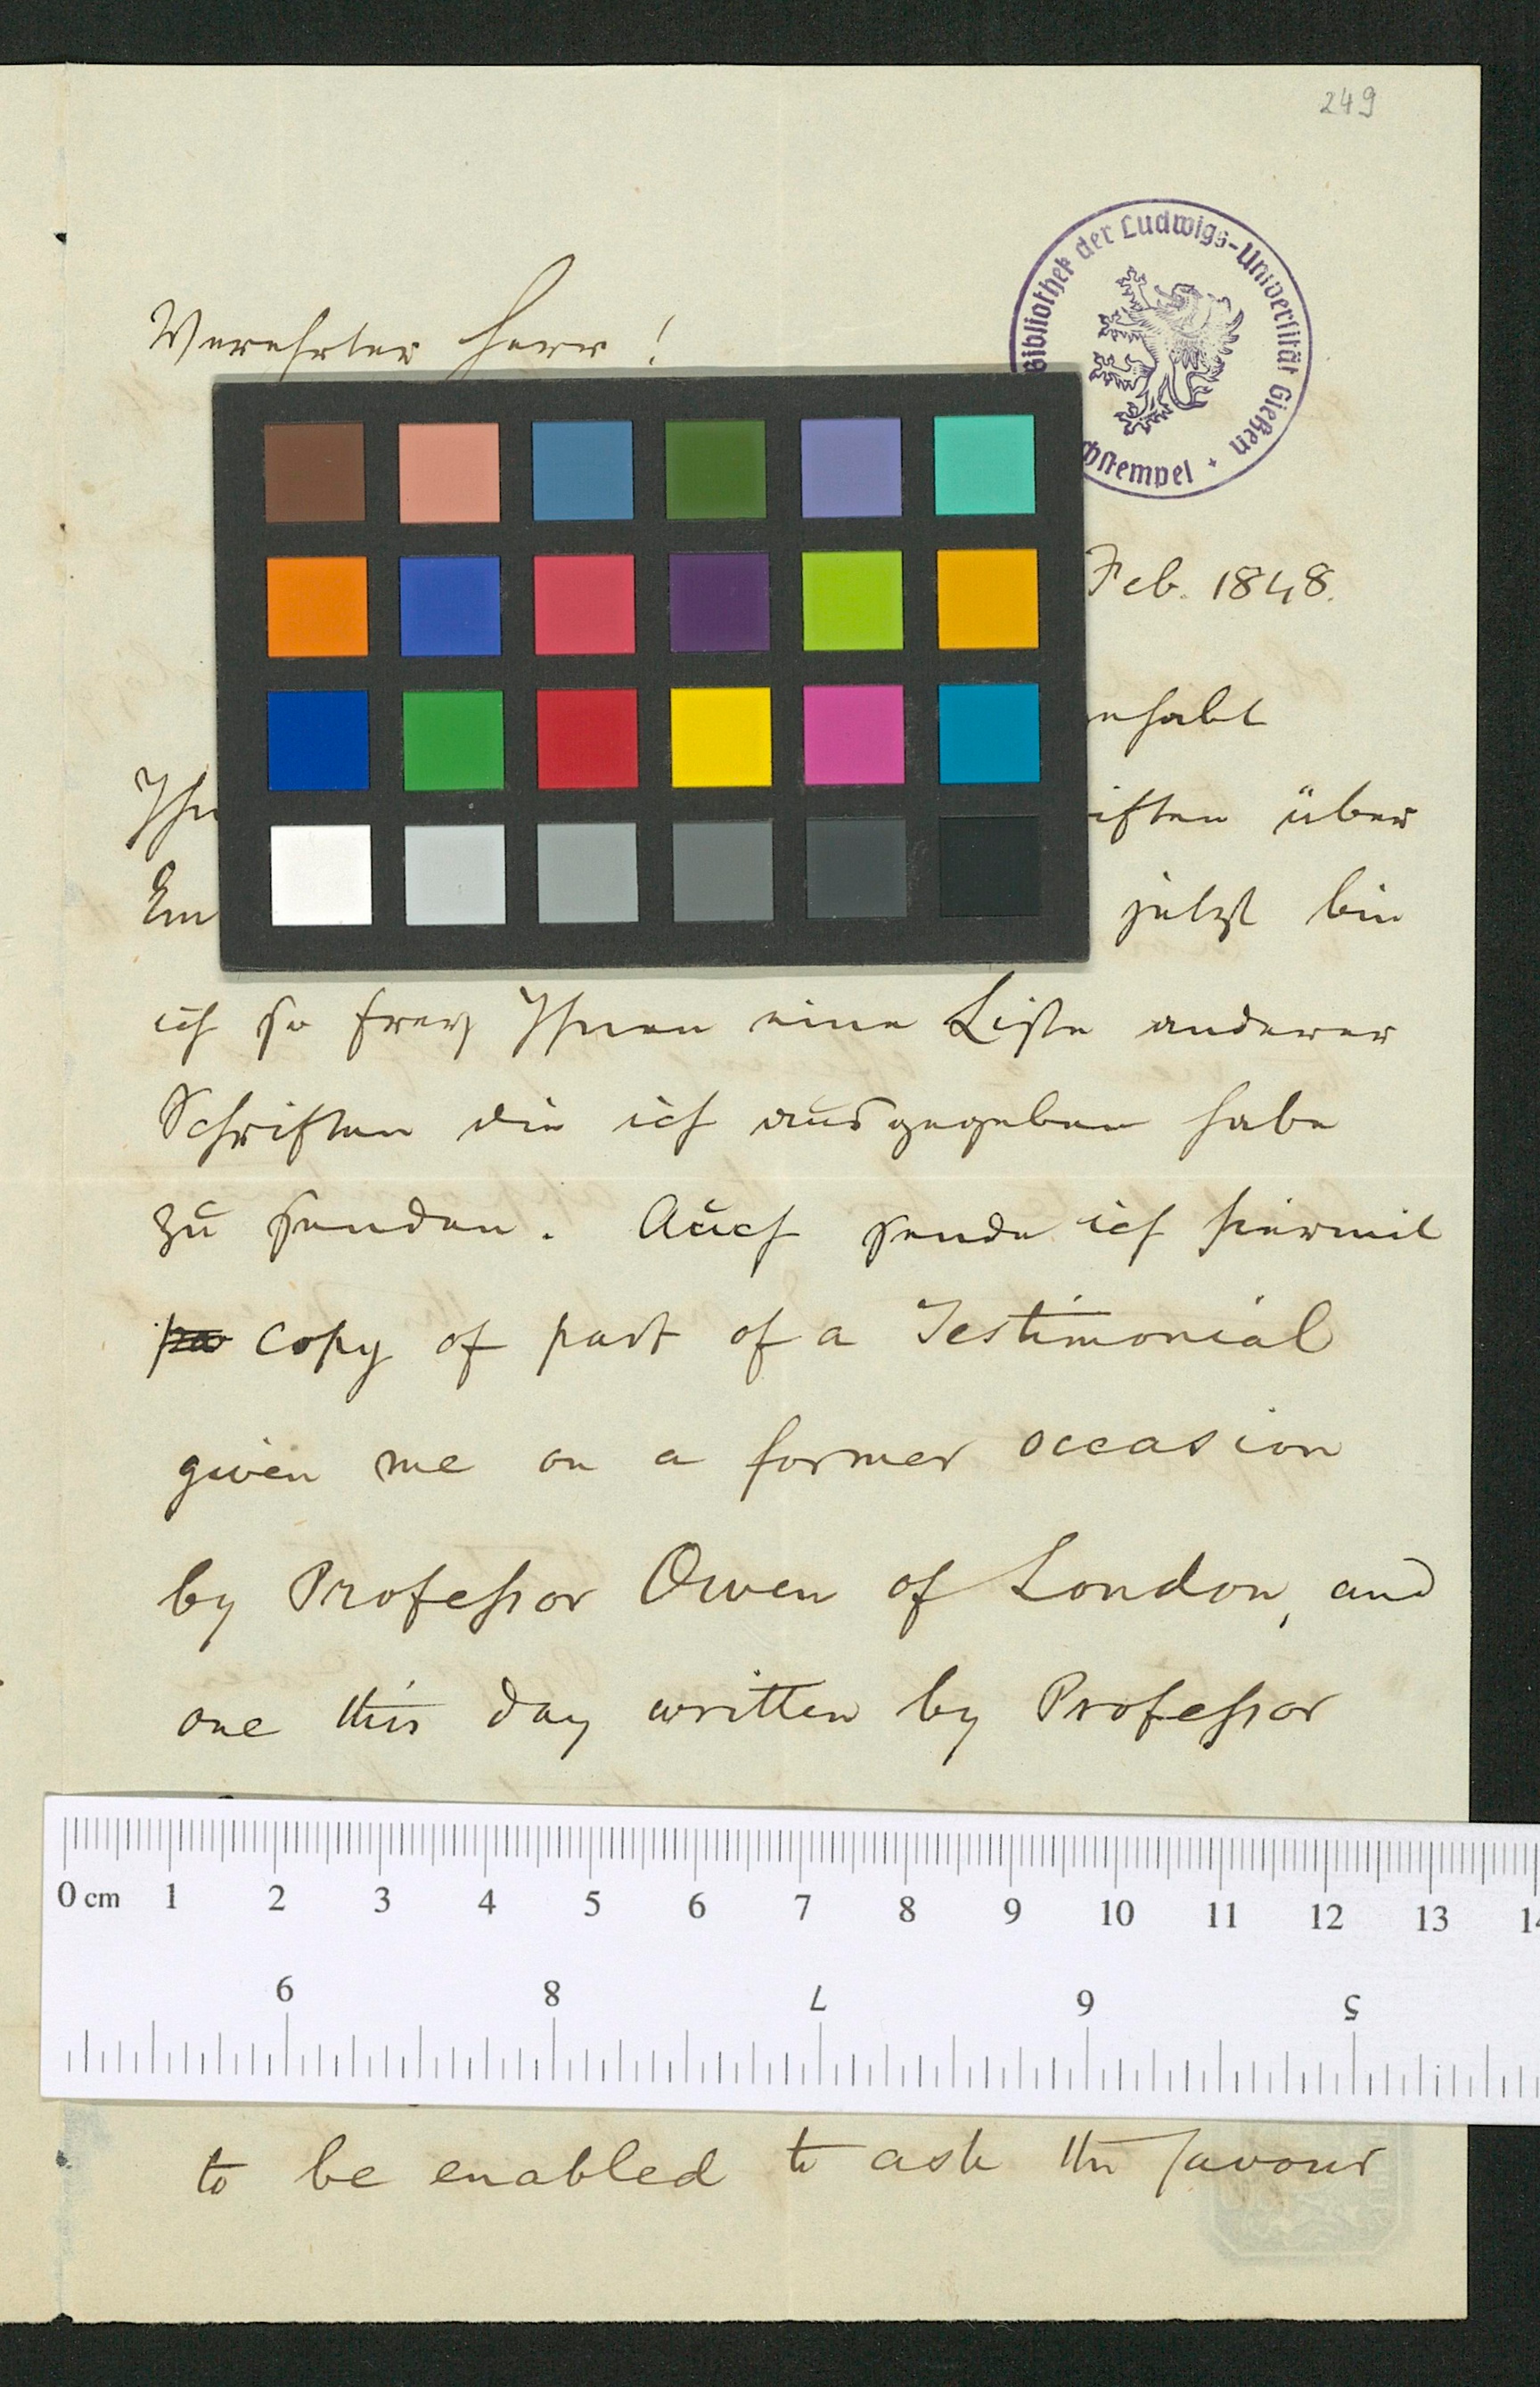 249
Bibliothek der Ludwigs-Universität Gießen
Verehrter Herr!
Feb. 1848.
gehabt
Ihn
iften über
Em
jetzt bin
ich so frey Ihnen eine Liste anderer
Schriften die ich ausgegeben habe
zu senden. Auch sende ich hiermit
copy of part of a Testimonial
given me on a former occasion
by Professor Owen of London, and
one this day written by Professor
0 cm 1 2 3 4 5 6 7 8 9 10 11 12 13 14
9 8 7 6 5
to be enabled to ask the favour